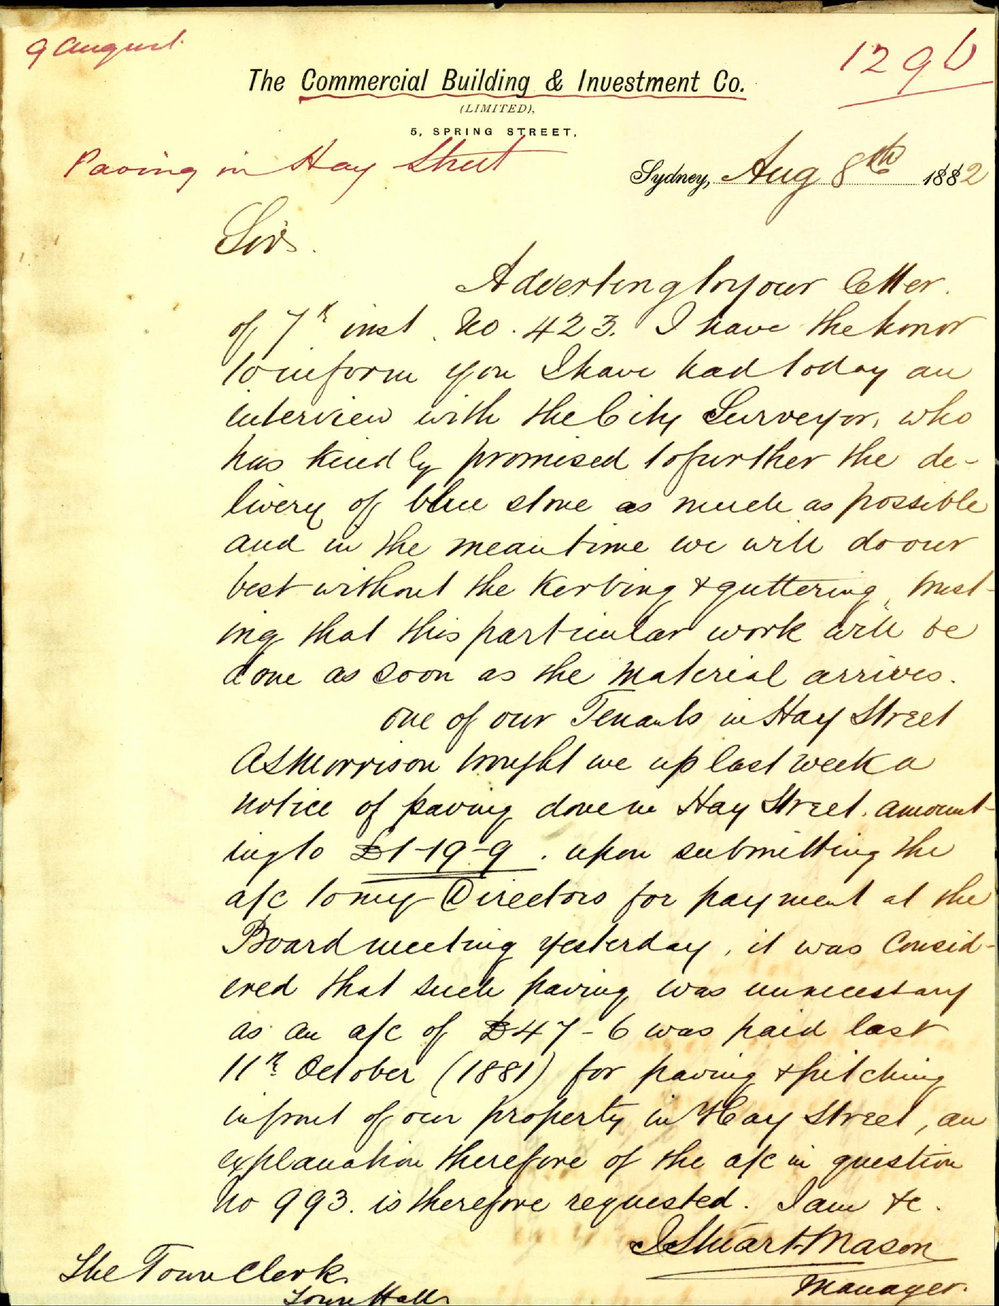 9 August
1296
The Commercial Building & Investment Co.
(LIMITED),
5, SPRING STREET,
Paving in Hay Street
Sydney, Aug 8th 1882
Sir.
Adverting to your letter.
of 7th inst. No. 423. I have the honor
to inform you I have had today an
interview with the City Surveyor, who
has kindly promised to further the de-
livery of blue stone as much as possible
and in the meantime we will do our
best without the kerbing & guttering, trust-
ing that this particular work will be
done as soon as the material arrives.
One of our Tenants in Hay Street
Morrison brought me up last week a
notice of paving done in Hay Street. amount-
ing to £1-19-9. upon submitting the
a/c to my Directors for payment at the
Board meeting yesterday, it was Consid-
ered that such paving was unnecessary
as an a/c of £47-6 was paid last
11th October (1881) for paving & pitching
in front of our property in Hay Street, an
explanation therefore of the a/c in question
No 993. is therefore requested. I am &c.
J Stuart Mason
Manager.
The Town Clerk
Town Hall